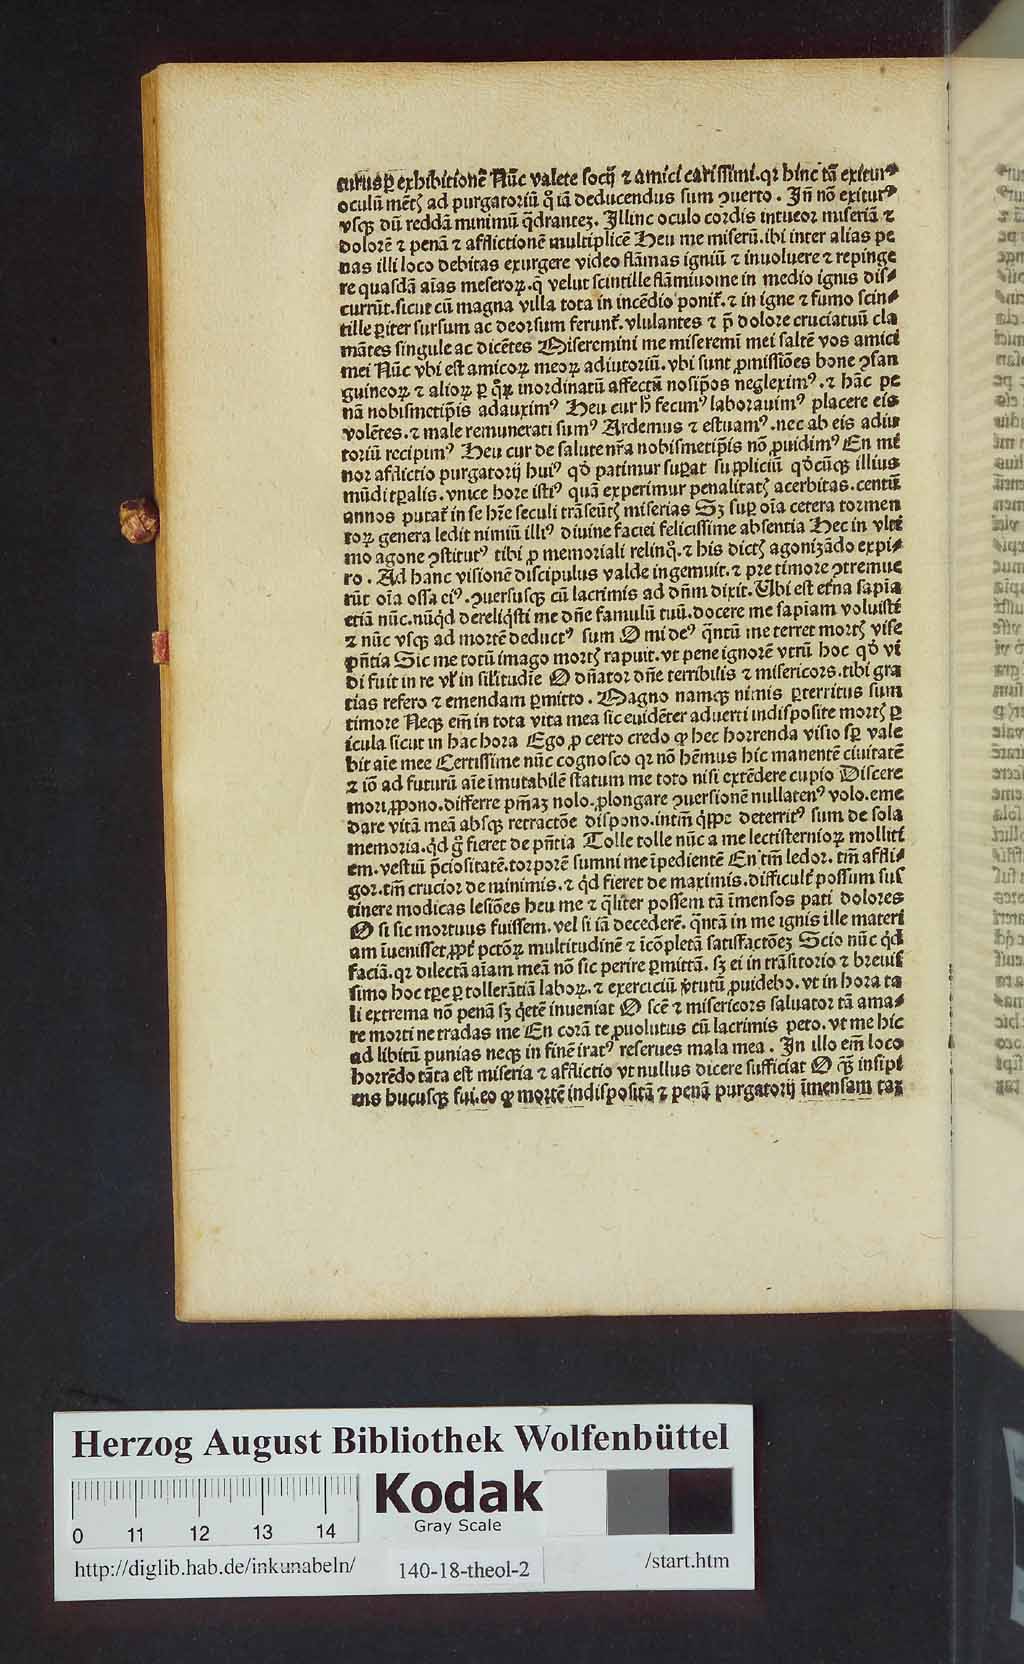 curus ꝑ exhibitionẽ Nũc valete socij ⁊ amici carissimi. qꝛ hinc tã exitur⁹
oculũ mẽtꝭ ad purgatoriũ qͦ iã deducendus sum ꝯuerto. Jn̄ nõ exitur⁹
vsqꝫ dũ reddã minimũ q̃drantez. Jllinc oculo cordis intueor miseriã ⁊
dolorẽ ⁊ penã ⁊ afflictionẽ multiplicẽ Heu me miserũ. ibi inter alias pe
nas illi loco debitas exurgere video flãmas igniũ ⁊ inuoluere ⁊ repinge
re quasdã aĩas meseroꝝ. q̃ velut scintille flãmiuome in medio ignis dis⸗
currũt. sicut cũ magna villa tota in incẽdio ponit᷑. ⁊ in igne ⁊ fumo scin⸗
tille ꝑiter sursum ac deorsum ferunt᷑. vlulantes ⁊ p̃ dolore cruciatuũ cla
mãtes singule ac dicẽtes Miseremini me miseremĩ mei saltẽ vos amici
mei Nũc vbi est amicoꝝ meoꝝ adiutoriũ. vbi sunt ꝓmissiões bone ꝯsan
guineoꝝ ⁊ alioꝝ ꝑ qͦꝝ inordinatũ affectũ nosip̃os neglexim⁹. ⁊ hãc pe
nã nobismetip̃is adauxim⁹ Heu cur h̃ fecim⁹ laborauim⁹ placere eis
volẽtes. ⁊ male remunerati sum⁹ Ardemus ⁊ estuam⁹. nec ab eis adiu
toriũ recipim⁹ Heu cur de salute nr̃a nobismetip̃is nõ ꝓuidim⁹ En mi
nor afflictio purgatorij hui⁹ qḋ patimur suꝑat suppliciũ qḋcũqꝫ illius
mũdi tꝑalis. vnice hore isti⁹ quã experimur penalitatꝭ acerbitas. centũ
annos putat᷑ in se hr̃e seculi trãseũtꝭ miserias Sꝫ suꝑ oĩa cetera tormen
toꝝ genera ledit nimiũ illi⁹ diuine faciei felicissime absentia Hec in vlti
mo agone ꝯstitut⁹ tibi ꝓ memoriali relinq̃. ⁊ his dictꝭ agonizãdo expi⸗
ro. Ad hanc visionẽ discipulus valde ingemuit. ⁊ pre timore ꝯtremue
rũt oĩa ossa ei⁹. ꝯuersusqꝫ cũ lacrimis ad dñm dixit. Vbi est et̃na sapĩa
etiã nũc. nũq̇d dereliq̇sti me dñe famulũ tuũ. docere me sapĩam voluisti
⁊ nũc vsqꝫ ad mortẽ deduct⁹ sum O mi de⁹ q̃ntũ me terret mortꝭ vise
p̃ñtia Sic me totũ imago mortꝭ rapuit. vt pene ignorẽ vtrũ hoc qḋ vi
di fuit in re vľ in silĩtudĩe O dñator dñe terribilis ⁊ misericors. tibi gra
tias refero ⁊ emendam ꝓmitto. Magno namqꝫ nimis ꝑterritus sum
timore Neqꝫ em̃ in tota vita mea sic euidẽter aduerti indisposite mortꝭ ꝑ
icula sicut in hac hora Ego ꝓ certo credo ꝙ hec horrenda visio sꝑ vale
bit aĩe mee Certissime nũc cognosco qꝛ nõ hẽmus hic manentẽ ciuitatẽ
⁊ iõ ad futurũ aĩe ĩmutabilẽ statum me toto nisi extẽdere cupio Discere
mori ꝓpono. differre pm̃az nolo. ꝓlongare ꝯuersionẽ nullaten⁹ volo. eme
dare vitã meã absqꝫ retractõe dispono. intm̃ q̇ppe deterrit⁹ sum de sola
memoria. q̇d g̊ fieret de p̃ñtia Tolle tolle nũc a me lectisternioꝝ molliti
em. vestiũ p̃ciositatẽ. torporẽ sumni me ĩpedientẽ En tm̃ ledor. tm̃ affli⸗
gor. tm̃ crucior de minimis. ⁊ q̇d fieret de maximis. difficult᷑ possum sus
tinere modicas lesiões heu me ⁊ q̃liter possem tã ĩmensos pati dolores
O si sic mortuus fuissem. vel si iã decederẽ. q̃ntã in me ignis ille materi
am ĩuenisset. ꝓpt᷑ pctõꝝ multitudinẽ ⁊ ĩcõpletã satisfactõez Scio nũc q̇d
faciã. qꝛ dilectã aĩam meã nõ sic perire ꝑmittã. sꝫ ei in trãsitorio ⁊ breuis
simo hoc tꝑe ꝑ tollerãtiã laboꝝ. ⁊ exerciciũ v̇tutũ ꝓuidebo. vt in hora ta
li extrema nõ penã sꝫ q̇etẽ inueniat O scẽ ⁊ misericors saluator tã ama⸗
re morti ne tradas me En corã te ꝓuolutus cũ lacrimis peto. vt me hic
ad libitũ punias neqꝫ in finẽ irat⁹ reserues mala mea. Jn illo em̃ loco
horrẽdo tãta est miseria ⁊ afflictio vt nullus dicere sufficiat O qꝫ̃ insipi
ens hucusqꝫ fui. eo ꝙ mortẽ indispositã ⁊ penã purgatorij ĩmensam tax
Herzog August Bibliothek Wolfenbüttel
Kodak
Gray Scale
0 11 12 13 14
http://diglib.hab.de/inkunabeln/ 140-18-theol-2 /start.htm